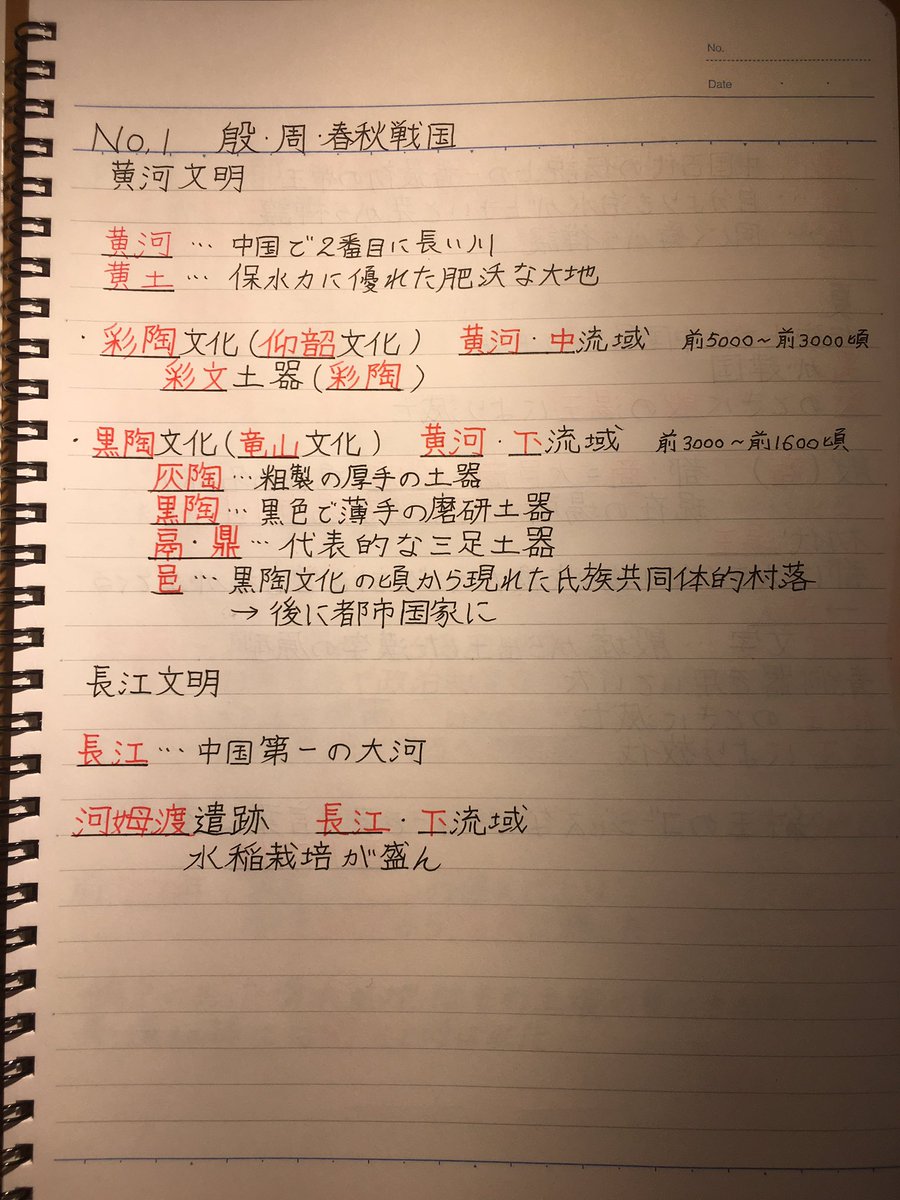 No.
Date
No.1 殷・周・春秋戦国
黄河文明
黄河 … 中国で2番目に長い川
黄土 … 保水力に優れた肥沃な大地
・彩陶文化(仰韶文化) 黄河・中流域 前5000~前3000頃
彩文土器(彩陶)
・黒陶文化(竜山文化) 黄河・下流域 前3000~前1600頃
灰陶…粗製の厚手の土器
黒陶…黒色で薄手の磨研土器
鬲・鼎…代表的な三足土器
邑…黒陶文化の頃から現れた氏族共同体的村落
→後に都市国家に
長江文明
長江…中国第一の大河
河姆渡遺跡 長江・下流域
水稲栽培が盛ん